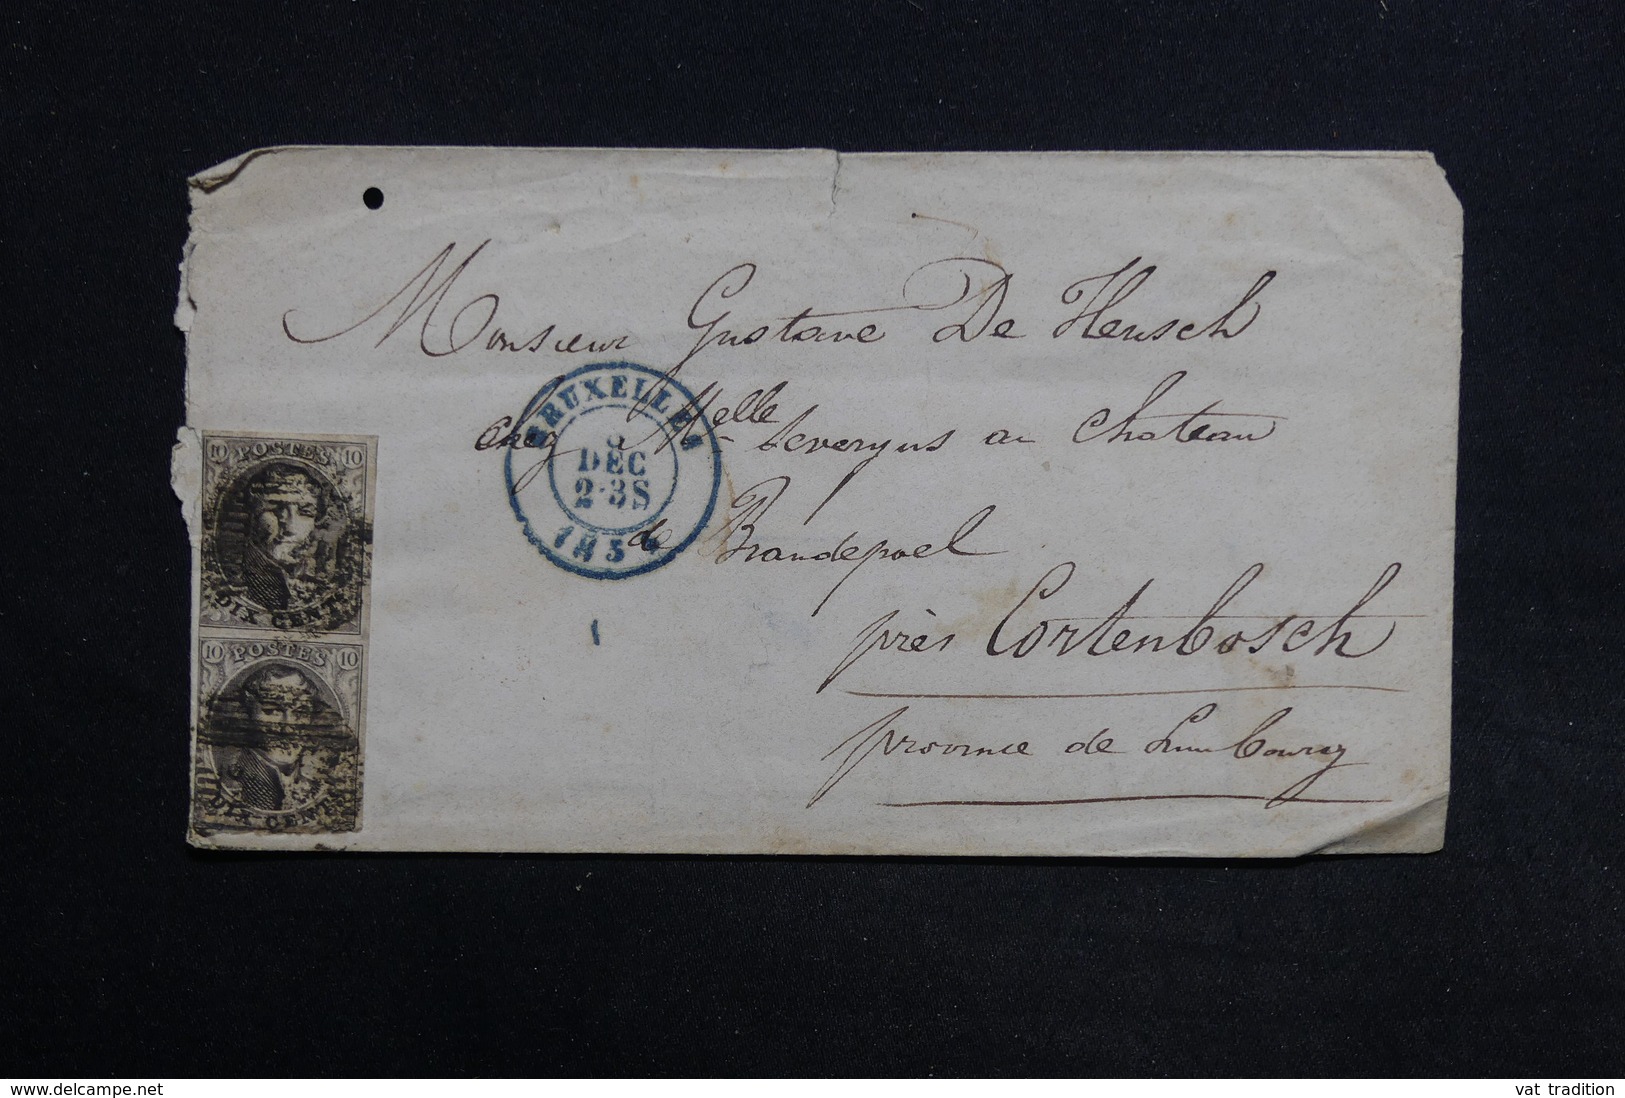 Monsieur Gustave De Heusch
chez Melle Severyns au Chateau
de Brandepoel
près Cortenbosch
province de Limbourg
BRUXELLES
DEC
2·3S
185
10 POSTES 10
DIX CENT.
10 POSTES 10
DIX CENT.
1
www.delcampe.net
vat_tradition